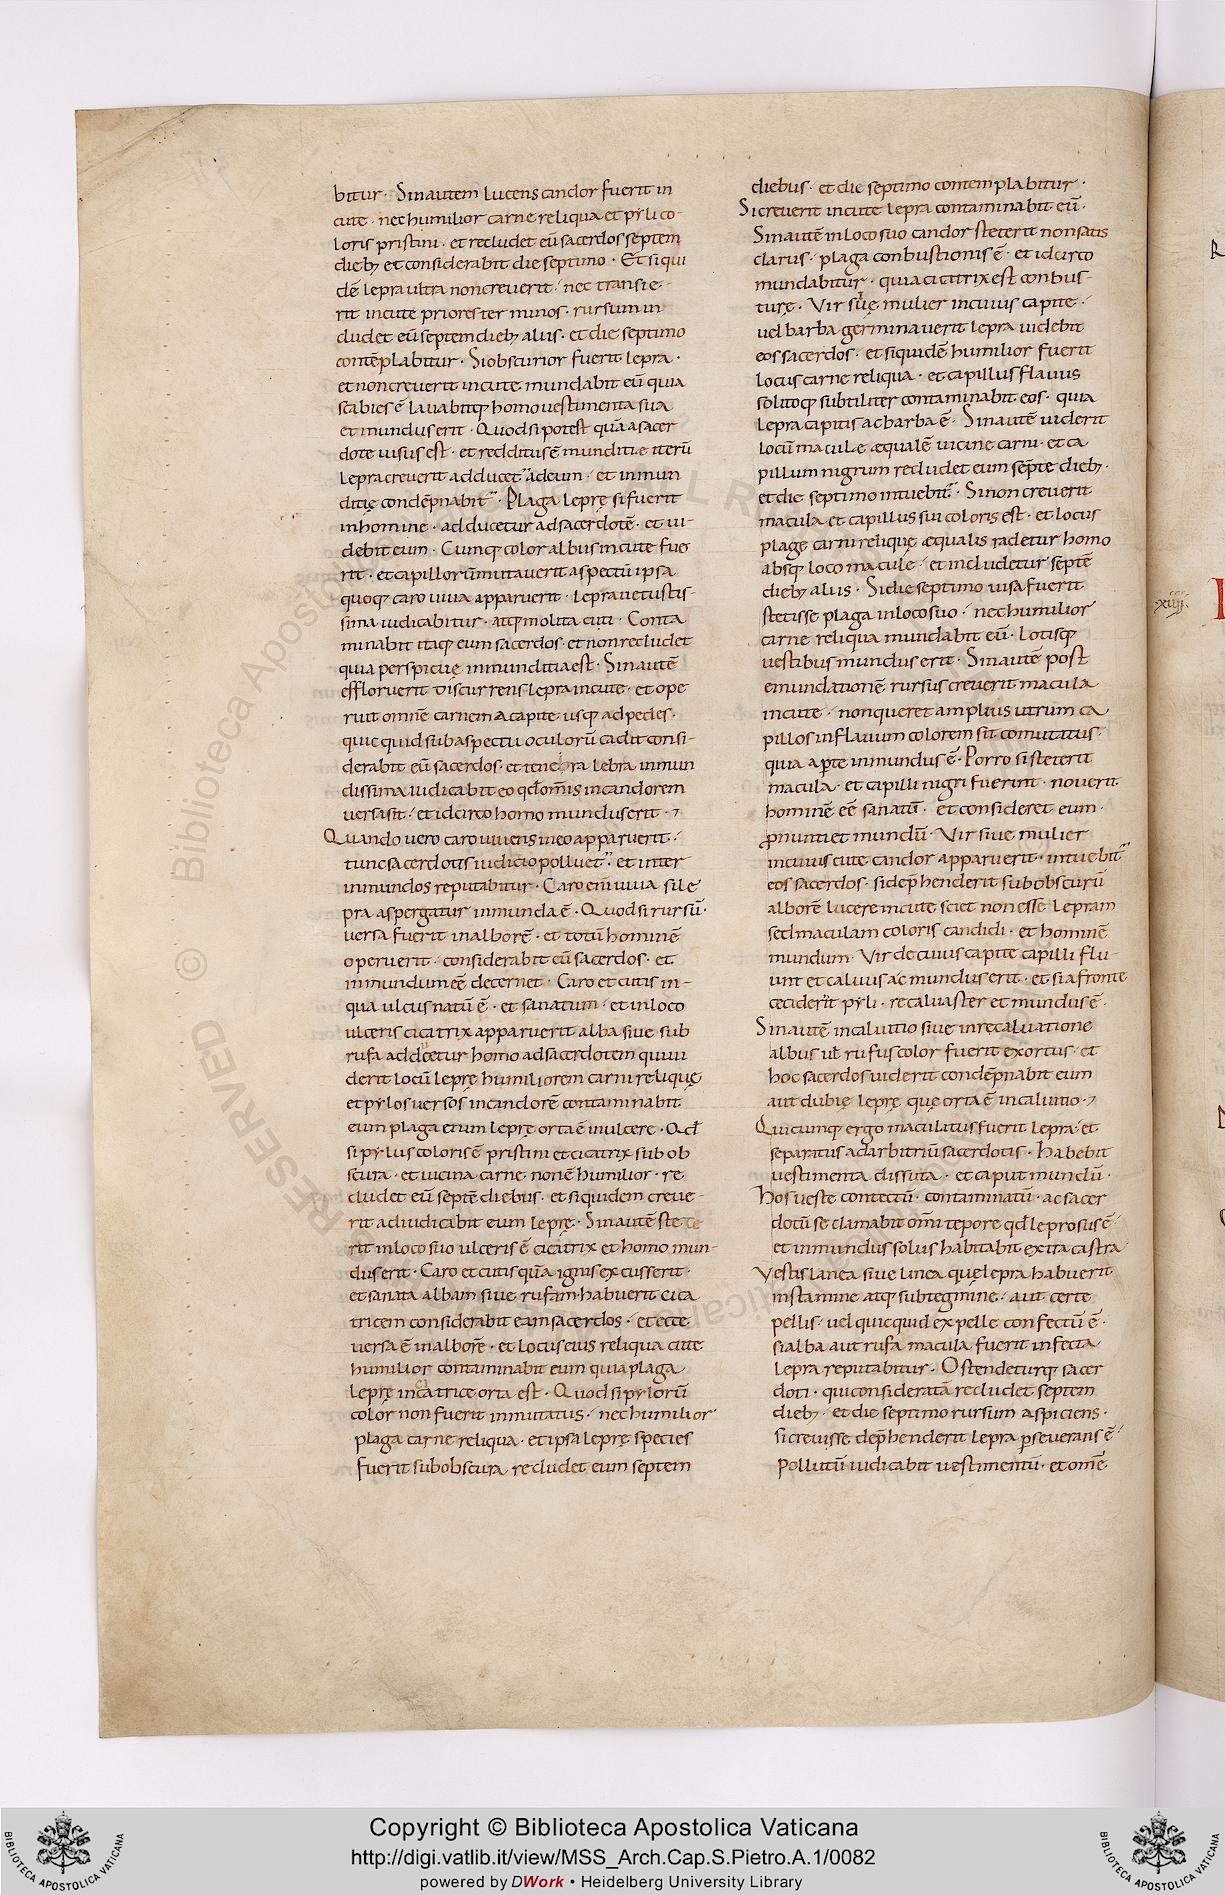 bitur · Sinautem lucens candor fuerit in
cute · nec humilior carne reliqua et pyli co-
loris pristini · et recludet eū sacerdos septem
dieb; et considerabit die septimo · Et siqui
dē lepra ultra non creuerit · nec transie-
rit in cute priores terminos · rursum in
cludet eū septem dieb; aliis · et die septimo
contēplabitur · Si obscurior fuerit lepra ·
et non creuerit in cute mundabit eū quia
scabies ē lauabitq; homo uestimenta sua
et mundus erit · Quod si potest quā a sacer
dote uisus est · et redditus ē munditie iterū
lepra creuerit adducet᷑ ad eum · et inmun
ditię condēpnabit᷑ · Plaga leprę si fuerit
in homine · adducetur ad sacerdotē · et ui-
debit eum · Cumq; color albus in cute fue
rit · et capillorū mutauerit aspectū ipsa
quoq; caro uiua apparuerit · lepra uetustis-
sima iudicabitur · atq; molita cuti · Conta
minabit itaq; eum sacerdos · et non recludet
quia perspicuę inmunditia est · Sin autē
effloruerit discurrens lepra in cute · et ope
ruit omnē carnem a capite usq; ad pedes ·
quic quid sub aspectu oculorū cadit consi-
derabit eū sacerdos · et lebra inmun
dissima iudicabit eo qđ om̄is in candorem
uersa sit · et idcirco homo mundus erit ·
Quando uero caro uiuens in eo apparuerit ·
tunc sacerdotis iudicio polluet᷑ · et inter
inmundos reputabitur · Caro eni᷑ uiua si le
pra aspergatur inmunda ē · Quod si rursū ·
uersa fuerit in alborē · et totū hominē
operuerit · considerabit eū sacerdos · et
inmundum eē decernet · Caro et cutis in-
qua ulcus natū ē · et sanatum · et in loco
ulceris cicatrix apparuerit alba siue sub
rufa adducetur homo ad sacerdotem qui ui
derit locū leprę humiliorem carni reliquę
et pylos uersos in candorē contaminabit
eum plaga enim leprę orta ē in ulcere · Qđ
si pylus coloris ē pristini et cicatrix sub ob
scura · et uicina carne non ē humilior · re
cludet eū septē diebus · et si quidem creue-
rit adiudicabit eum lepre · Sin autē ste
rit in loco suo ulceris ē cicatrix et homo mun-
dus erit · Caro et cutis quā ignis excusserit ·
et sanata albam siue rufam habuerit cica
tricem considerabit eam sacerdos · et ecce
uersa ē in alborē · et locus eius reliqua cute
humilior contaminabit eum quia plaga
leprę in cicatrice orta est · Quod si pylorū
color non fuerit inmutatus · nec humilior
plaga carne reliqua · et ipsa leprę species
fuerit subobscura recludet eum septem
diebus · et die septimo contemplabitur ·
Si creuerit in cute lepra contaminabit eū ·
Sin autē in loco suo candor steterit non satis
clarus · plaga conbustionis ē · et idcirco
mundabitur · quia cicatrix est conbus-
turę · Vir siue mulier in cuius capite ·
uel barba germinauerit lepra uidebit
eos sacerdos · et siquidē humilior fuerit
locus carne reliqua · et capillus flauus
solitoq; subtilior contaminabit eos · quia
lepra capitis ac barba ē · Sin autē uiderit
locū macule æqualē uicine carni · et ca
pillum nigrum recludet eum septe dieb; ·
et die septimo intuebit᷑ · Si non creuerit
macula et capillus sui coloris est · et locus
plage carni reliquę æqualis radetur homo
absq; loco macule · et includetur septē
dieb; aliis · Si die septimo uisa fuerit
stetisse plaga in loco suo · nec humilior
carne reliqua mundabit eū · Lotisq;
uestibus mundus erit · Sin autē post
emundationē rursus creuerit macula
in cute · non queret amplius utrum ca
pillos in flauum colorem sit comutatus ·
quia aperte inmundus ē · Porro si steterit
macula · et capilli nigri fuerint · nouerit
hominē eē sanatū · et consideret eum ·
pronuntiet mundū · Vir siue mulier
in cuius cute candor apparuerit · intuebit᷑
eos sacerdos · si depręhenderit subobscurū
alborē lucere in cute sciet non esse lepram
sed maculam coloris candidi · et hominē
mundum · Vir de cuius capite capilli flu-
unt et caluus ac mundus erit · et si a fronte
ceciderit pyli · recaluaster et mundus ē ·
Sin autē in caluitio siue in recaluatione
albus ul̄ rufus color fuerit exortus · et
hoc sacerdos uiderit condēpnabit eum
aut dubię leprę quę orta ē in caluitio ·
Quicumq; ergo maculatus fuerit lepra et
separatus ad arbitriū sacerdotis · Habebit
uestimenta dissuta · et caput mundū ·
Hos ueste contectū · contaminatū · ac sacer
dotū se clamabit om̄i tepore qđ leprosus ē ·
et inmundus solus habitabit extra castra
Vestis lanea siue linea quę lepra habuerit
in stamine atq; subtegmine · aut certe
pellis · uel quicquid ex pelle confectū ē ·
si alba aut rufa macula fuerit infecta
lepra reputabitur · Ostendeturq; sacer
doti · qui consideratā recludet septem
dieb; · et die septimo rursum aspiciens ·
si creuisse depręhenderit lepra perseuerans ē
pollutū iudicabit uestimentū · et om̄e
xiiij.
Copyright © Biblioteca Apostolica Vaticana
http://digi.vatlib.it/view/MSS_Arch.Cap.S.Pietro.A.1/0082
powered by DWork • Heidelberg University Library